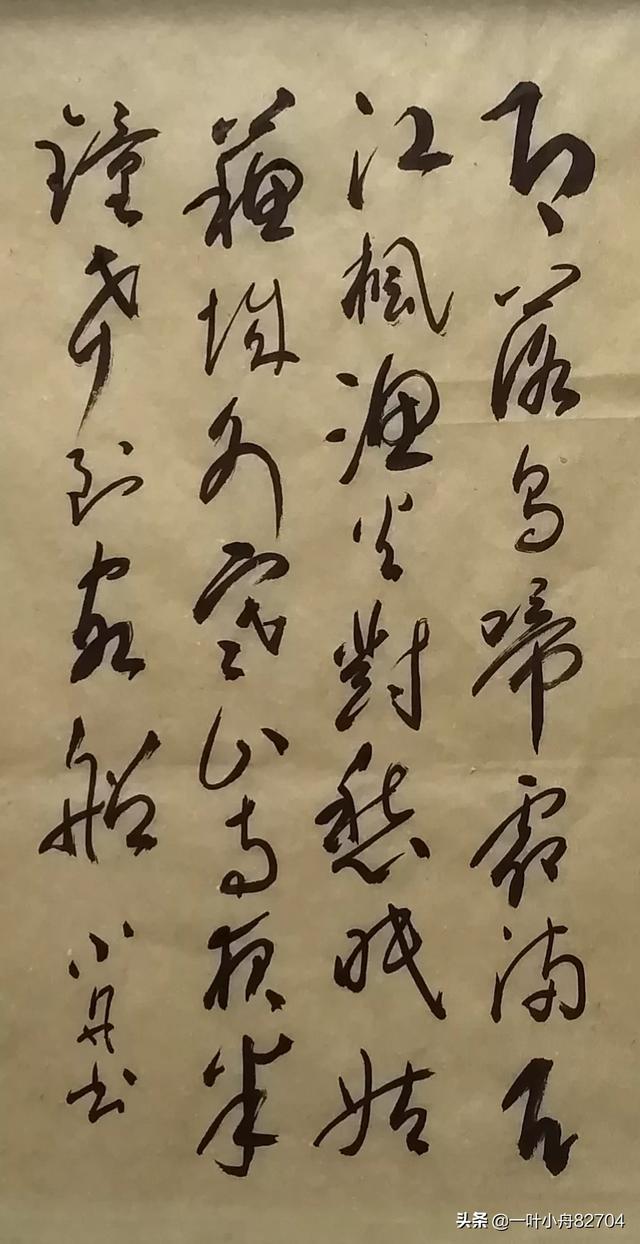 月落烏啼霜滿天
江楓漁火對愁眠姑
蘇城外寒山寺夜半
鐘聲到客船
小舟书
头条 @一叶小舟82704